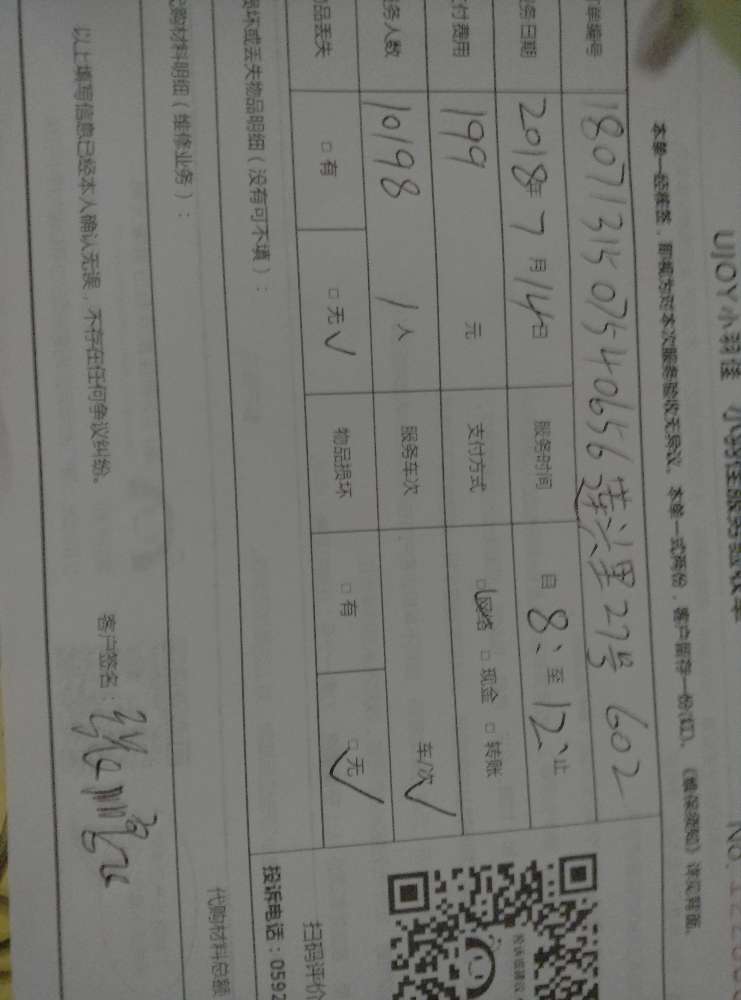 UJOY小羽佳 小羽佳服务验收单
No.122
本单一经签签，即视为对本次服务验收无异议。本单一式两份，客户留存一份(红)。
单编号 18071315075406 56莲兴里27号602
务日期 2018年7月14日 服务时间 自8:至12:止
付费用 199元 支付方式 □网络 □现金 □转账
务人数 10198 1人 服务车次 车/次
物品丢失 □有 □无√ 物品损坏 □有 □无√
损坏或丢失物品明细（没有可不填）：
代购材料明细（维修业务）：
代购材料总额
以上填写信息已经本人确认无误，不存在任何争议纠纷。
客户签名：
投诉或建议
扫码评价
投诉电话：0592